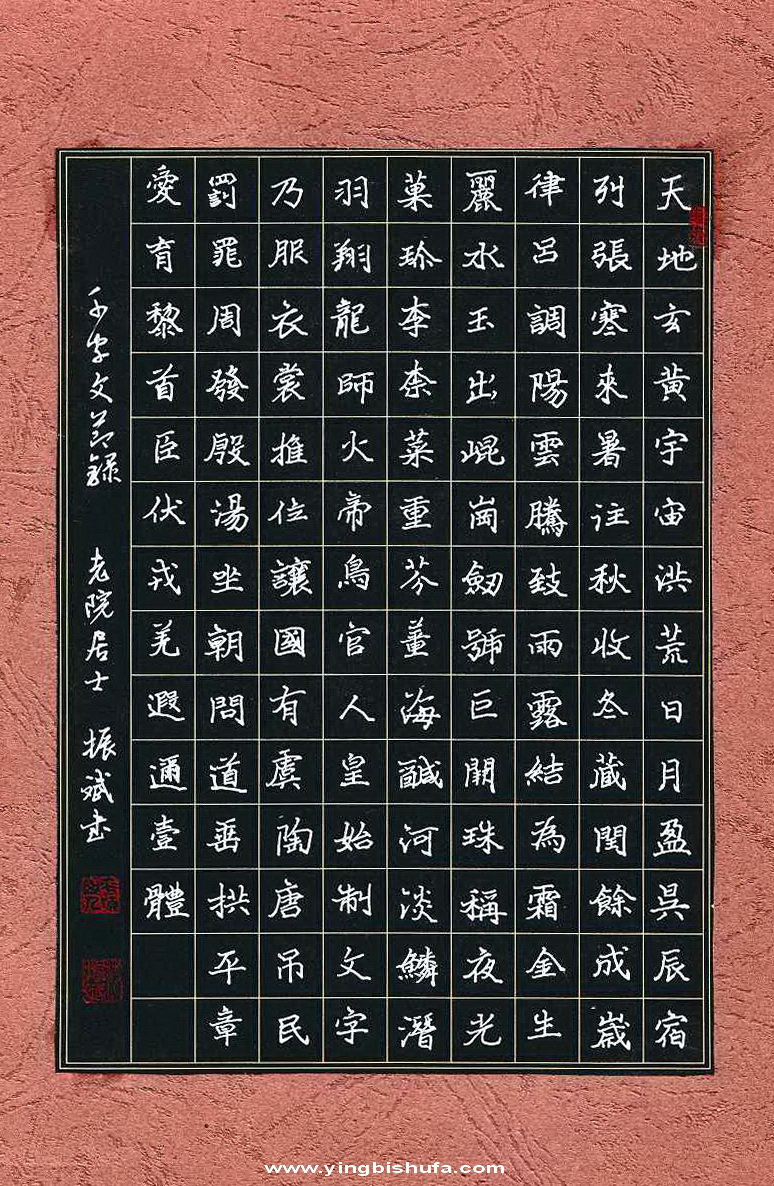 天地玄黃宇宙洪荒日月盈昃辰宿
列張寒來暑往秋收冬藏閏餘成歲
律呂調陽雲騰致雨露結為霜金生
麗水玉出崐崗劒號巨闕珠稱夜光
菓珍李柰菜重芥薑海鹹河淡鱗潛
羽翔龍師火帝鳥官人皇始制文字
乃服衣裳推位讓國有虞陶唐吊民
罰罪周發殷湯坐朝問道垂拱平章
愛育黎首臣伏戎羌遐邇壹體
千字文節錄 老院居士 振斌書
www.yingbishufa.com